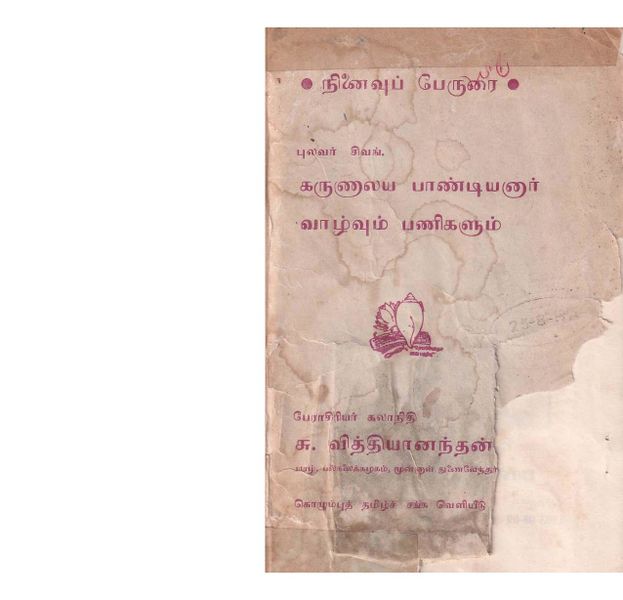 ● நினைவுப் பேருரை ●
புலவர் சிவங்.
கருணாலய பாண்டியனார்
வாழ்வும் பணிகளும்
பேராசிரியர் கலாநிதி
சு. வித்தியானந்தன்
யாழ். பல்கலைக்கழகம், முன்னாள் துணைவேந்தர்
கொழும்புத் தமிழ்ச் சங்க வெளியீடு